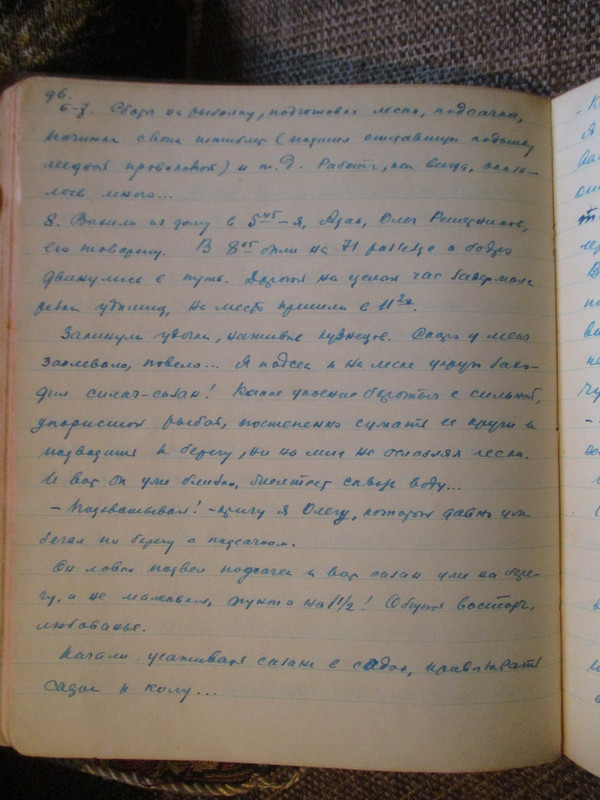 96.
6-7. Сборы на рыбалку, подготовка лески, подсачка,
починка своих штиблет (подшил отставшую подошву
медной проволокой) и т.д. Работы, как всегда, оказа-
лось много...
8. Вышли из дому в 5 45 - я, Адам, Олег Решетников,
его товарищ. В 8 05 были на 71 разъезде и бодро
двинулись в путь. Дорогой на целый час задержала
резка удилищ, на место пришли в 11 20.
Закинули удочки, наживив кузнецов. Скоро у меня
заклевало, повело... Я подсек и на леске упруго захо-
дил силач-сазан! Какое упоение бороться с сильной,
упористой рыбой, постепенно сужать ее круги и
подводить к берегу, ни на миг не ослабляя лески.
И вот он уже близко, блестит сквозь воду...
- Подхватывай! - кричу я Олегу, который давно уже
бегал по берегу с подсачком.
Он ловко подвел подсачек и вот сазан уже на бере-
гу, и не маленький, фунта на 1 1/2! Общий восторг,
любованье.
Начали усаживать сазана в садок, привязывать
садок к колу...
- К
Я
В